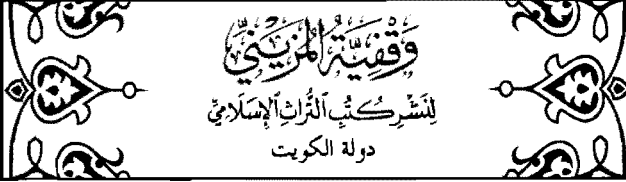 وَقْفِيَّةُ المُزَيْنِيِّ
لِنَشْرِ كُتُبِ ٱلتُّرَاثِ ٱلْإِسْلَامِيِّ
دولة الكويت